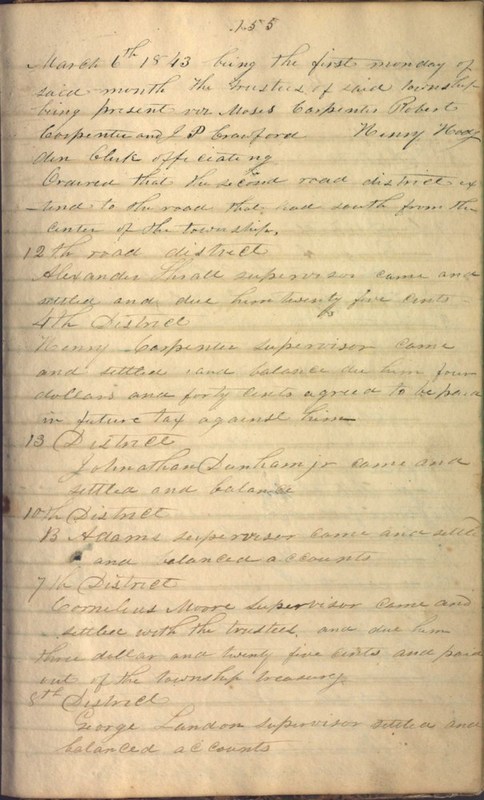 155
March 6th 1843 being the first monday of
said month the trustees of said township
being present viz Moses Carpenter Robert
Carpenter and J P Crawford Henry Hodg
den Clerk officiating
Ordered that the second road district ex
tend to the road that lead south from the
center of the township,
12th road district
Alexander Thrall supervisor came and
settled and due him twenty five cents
4th District
Henry Carpenter supervisor came
and settled and balance due him four
dollars and forty cents agreed to be paid
in future tax against him
13 District
Johnathan Dunham jr came and
settled and balance
10th District
B Adams supervisor came and settle
and balanced accounts
7th District
Cornelius Moore supervisor came and
settled with the trustees, and due him
three dollar and twenty five cents and paid
out of the township treasury
8th District
George Landon supervisor settled and
balanced accounts